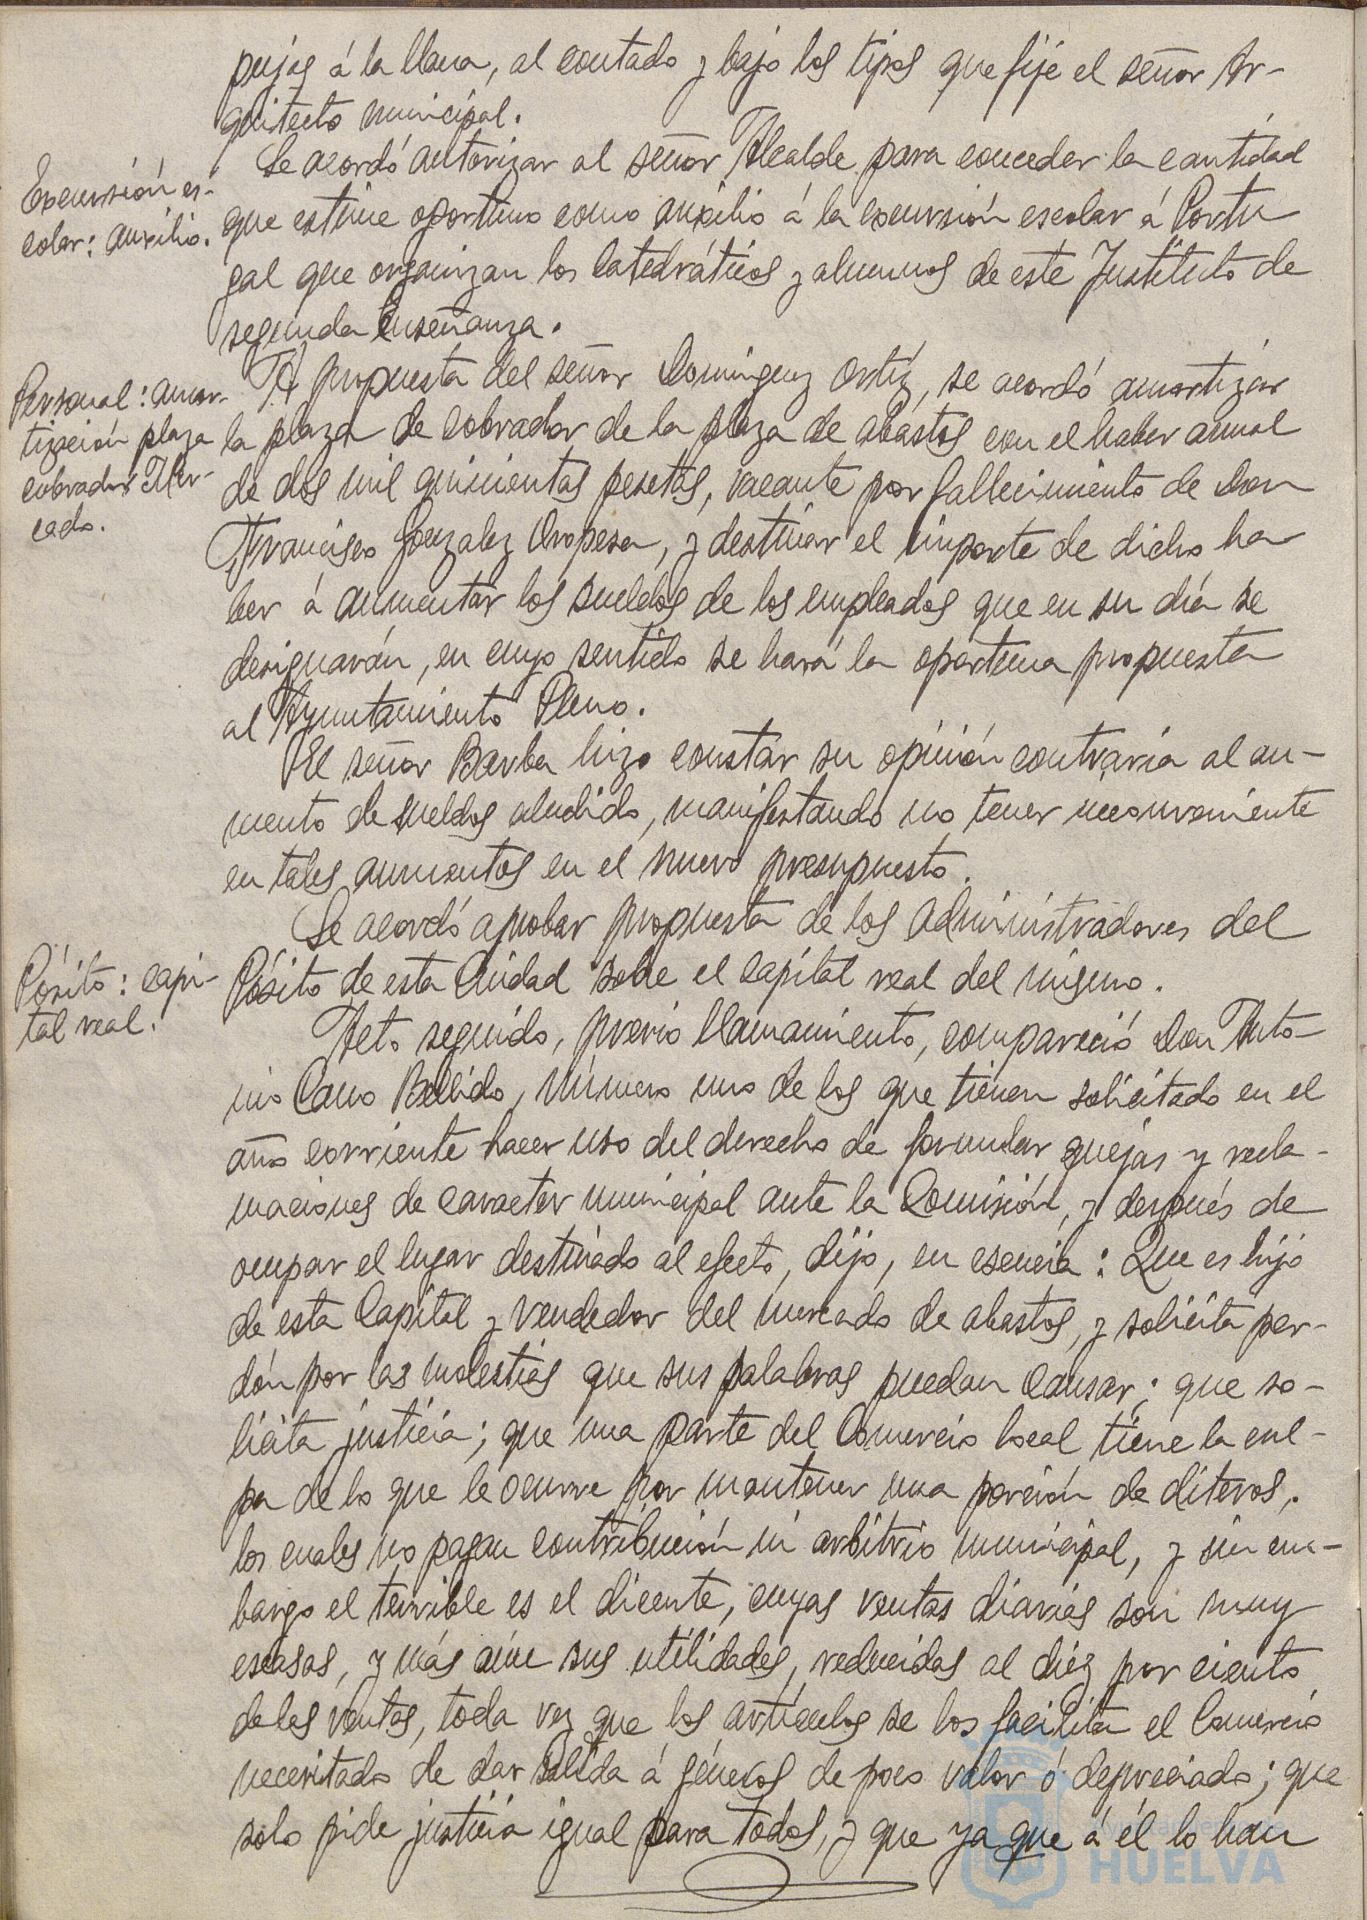 pujas á la llana, al contado y bajo los tipos que fije el señor Ar-
quitecto municipal.
Excursión es-
colar: auxilio.
Se acordó autorizar al señor Alcalde para conceder la cantidad
que estime oportuno como auxilio á la excursión escolar á Portu
gal que organizan los Catedráticos y alumnos de este Instituto de
segunda Enseñanza.
Personal: amor-
tización plaza
cobrador Mer-
cado.
A propuesta del señor Dominguez Ortiz, se acordó amortizar
la plaza de cobrador de la plaza de abastos con el haber anual
de dos mil quinientas pesetas, vacante por fallecimiento de Don
Francisco Gonzalez Oropesa, y destinar el importe de dicho ha
ber á aumentar los sueldos de los empleados que en su día se
designarán, en cuyo sentido se hará la oportuna propuesta
al Ayuntamiento Pleno.
El señor Barba hizo constar su opinión contraria al au-
mento de sueldos aludido, manifestando no tener inconveniente
en tales aumentos en el nuevo presupuesto.
Pósito: capi-
tal real.
Se acordó aprobar propuesta de los Administradores del
Pósito de esta Ciudad sobre el capital real del mismo.
Acto seguido, previo llamamiento, compareció Don Anto-
nio Cano Bellido, número uno de los que tienen solicitado en el
año corriente hacer uso del derecho de formular quejas y recla-
maciones de caracter municipal ante la Comisión, y después de
ocupar el lugar destinado al efecto, dijo, en esencia: Que es hijo
de esta Capital y vendedor del mercado de abastos, y solicita per-
dón por las molestias que sus palabras puedan causar; que so-
licita justicia; que una parte del Comercio local tiene la cul-
pa de lo que le ocurre por mantener una porción de diteros,
los cuales no pagan contribución ni arbitrio municipal, y sin em-
bargo el terrible es el dicente, cuyas ventas diarias son muy
escasas, y más aún sus utilidades, reducidas al diez por ciento
de las ventas, toda vez que los artículos se los facilita el Comercio
necesitado de dar salida á géneros de poco valor ó depreciado; que
solo pide justicia igual para todos, y que ya que á él lo han
Ayuntamiento de
HUELVA